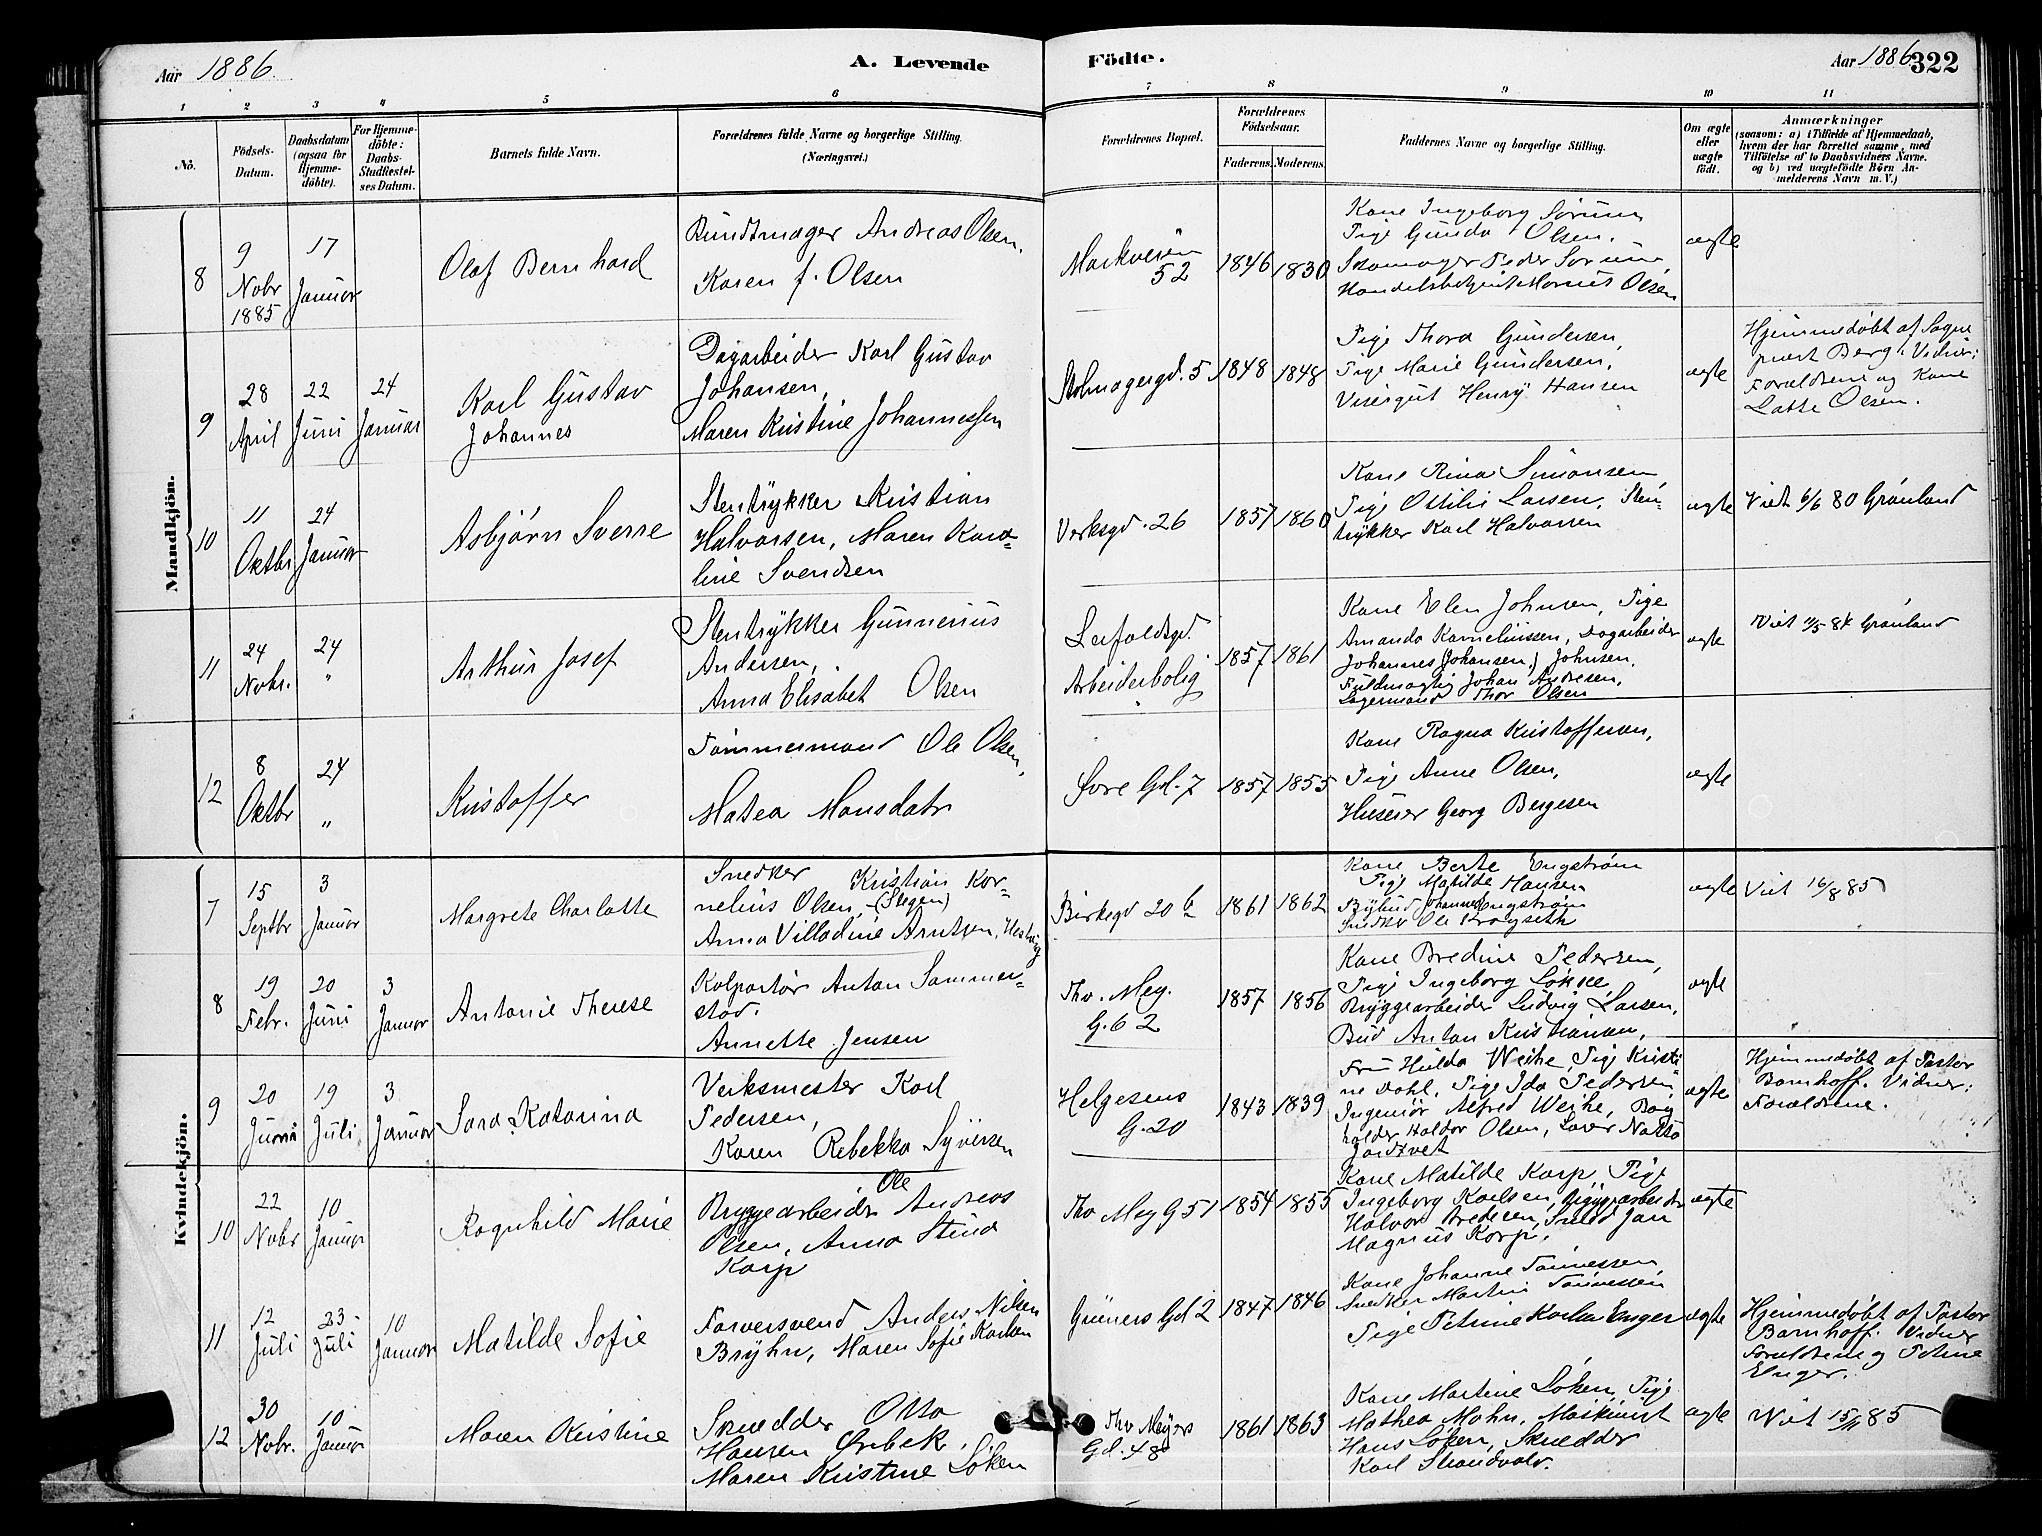 Aar 1886.
A. Levende
Födte.
Aar 1886
322
1 2 3 4 5 6 7 8 9 10 11
No.
Födsels-
Datum.
Daabsdatum
(ogsaa for
Hjemme-
döbte).
For Hjemme-
döbte:
Daabs-
Stadfæstel-
ses Datum.
Barnets fulde Navn.
Forældrenes fulde Navne og borgerlige Stilling.
(Næringsvei.)
Forældrenes Bopæl.
Forældrenes
Födselsaar.
Faderens. Moderens.
Faddernes Navne og borgerlige Stilling.
Om ægte
eller
uægte
födt.
Anmærkninger
(saasom: a) i Tilfælde af Hjemmedaab,
hvem der har forrettet samme, med
Tilföielse af to Daabsvidners Navne.
og b) ved uægtefödte Börn An-
melderens Navn m. V.)
Mandkjön.
8
9
Nobr
1885
17
Januar
Olaf Bernhard
Bundtmager Andreas Olsen,
Karen f. Olsen
Markveien
52
1846
1830
Kone Ingeborg Sørum
Pige Gunda Olsen.
Skomager Peder Sørum,
Handelsbetjent Olsen
ægte
9
28
April
22
Juni
24
Januar
Karl Gustav
Johannes
Dagarbeider Karl Gustav
Johansen,
Maren Kristine Johannessen
5
1848
1848
Pige Thora Gundersen,
Pige Marie Gundersen,
Visergut Henry Hansen
ægte
Hjemmedøbt af Sogne
præst Berg. Vidner:
Forældrene og Kone
Lotte Olsen.
10
11
Oktbr
24
Januar
Asbjørn Sverre
Stentrykker Kristian
Halvorsen, Maren Karo-
line Svendsen
Verksgd. 26
1857
1860
Kone Rina Simonsen
Pige Ottilie Larsen, Sten-
trykker Karl Halvorsen
ægte
Viet 6/6 80 Grønland
11
24
Nobr.
24
"
Arthur Josef
Stentrykker Gunnerius
Andersen,
Anna Elisabet Olsen
Arbeiderbolig
1857
1861
Kone Elen Johnsen, Pige
Amanda Korneliussen, Dagarbeider
Johannes (Johansen) Johnsen,
Fuldmægtig Johan Andresen,
Lagermand Thor Olsen
ægte
Viet 11/5 84 Grønland
12
8
Oktbr
24
"
Kristoffer
Tømmermand Ole Olsen,
Matea Monsdatr
Øvre Gd. 7
1857
1855
Kone Ragna Kristoffersen,
Pige Anne Olsen,
Huseier Georg Bergesen
ægte
Kvindekjön.
7
15
Septbr
3
Januar
Margrete Charlotte
Snedker Kristian Kor-
nelius Olsen, (Stegen)
Anna Villadine Arntzen,
Birksgd 20 b
1861
1862
Kone Berte Engstrøm
Pige Matilde Hansen
Bybud Johannes Engstrøm
Snedker Ole Krogseth
ægte
Viet 16/8 85
8
19
Febr.
20
Juni
3
Januar
Antonie Therese
Kolportør Anton Sommer-
stad.
Annette Jensen
Thv. Mey.
G. 62
1857
1856
Kone Bredine Pedersen,
Pige Ingeborg Løkke,
Bryggearbeider Ludvig Larsen,
Bud Anton Kristiansen,
ægte
9
20
Juni
19
Juli
3
Januar
Sara Katarina
Verksmester Karl
Pedersen,
Karen Rebekka Syversen
Helgesens
G. 20
1843
1839
Fru Hulda Weihe, Pige Kristi-
ne Dahl, Pige Ida Pedersen
Ingeniør Alfred Weihe, Bog
holder Haldor Olsen,
ægte
Hjemmedøbt af Pastor
Barnhoff. Vidner:
Forældrene.
10
22
Nobr
10
Januar
Ragnhild Marie
Bryggearbeider Ole Andreas
Olsen, Anna Stina
Karp
Thv Mey G 51
1854
1855
Kone Matilde Karp, Pige
Ingeborg Karlsen, Bryggearbeider
Halvor Bredesen, Smed Jan
Magnus Karp.
ægte
11
12
Juli
23
Juli
10
Januar
Matilde Sofie
Farversvend Anders Nilsen
Bryhn, Maren Sofie Karlsen
Grüners Gd 2
1847
1846
Kone Johanne Tønnessen,
Snedker Martin Tønnessen
Pige Petrine Karlsen Enger
ægte
Hjemmedøbt af Pastor
Barnhoff. Vidner
Forældrene og Petrine
Enger.
12
30
Nobr.
10
Januar
Maren Kristine
Skrædder Otto
Hansen Ørbek,
Maren Kristine Løken
Thv Meyers
Gd. 48
1861
1863
Kone Martine Løken, Pige
Mathea Mohn, Maskinist
Hans Løken, Skrædder
Karl Strandvold.
ægte
Viet 15/11 85